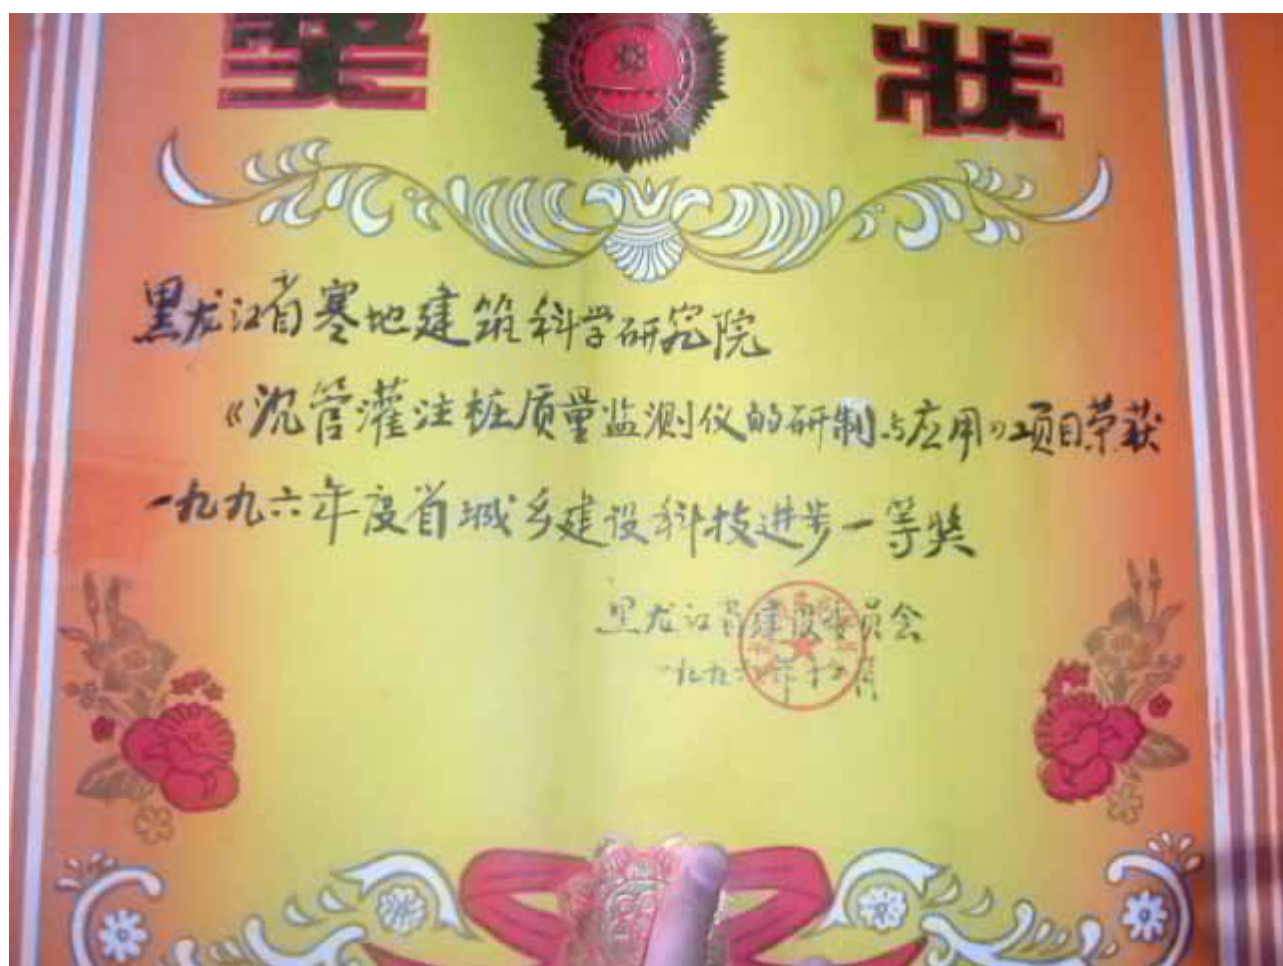 奖状
黑龙江省寒地建筑科学研究院
《沉管灌注桩质量监测仪的研制与应用》项目荣获
一九九六年度省城乡建设科技进步一等奖
黑龙江省建设委员会
一九九六年十二月